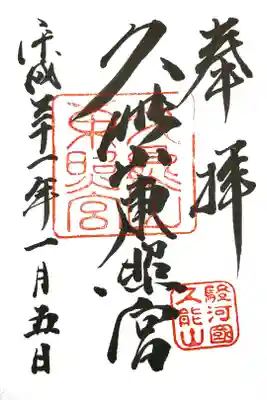 奉拝
久能山東照宮
平成三十一年一月五日
久能山東照宮
駿河國
久能山